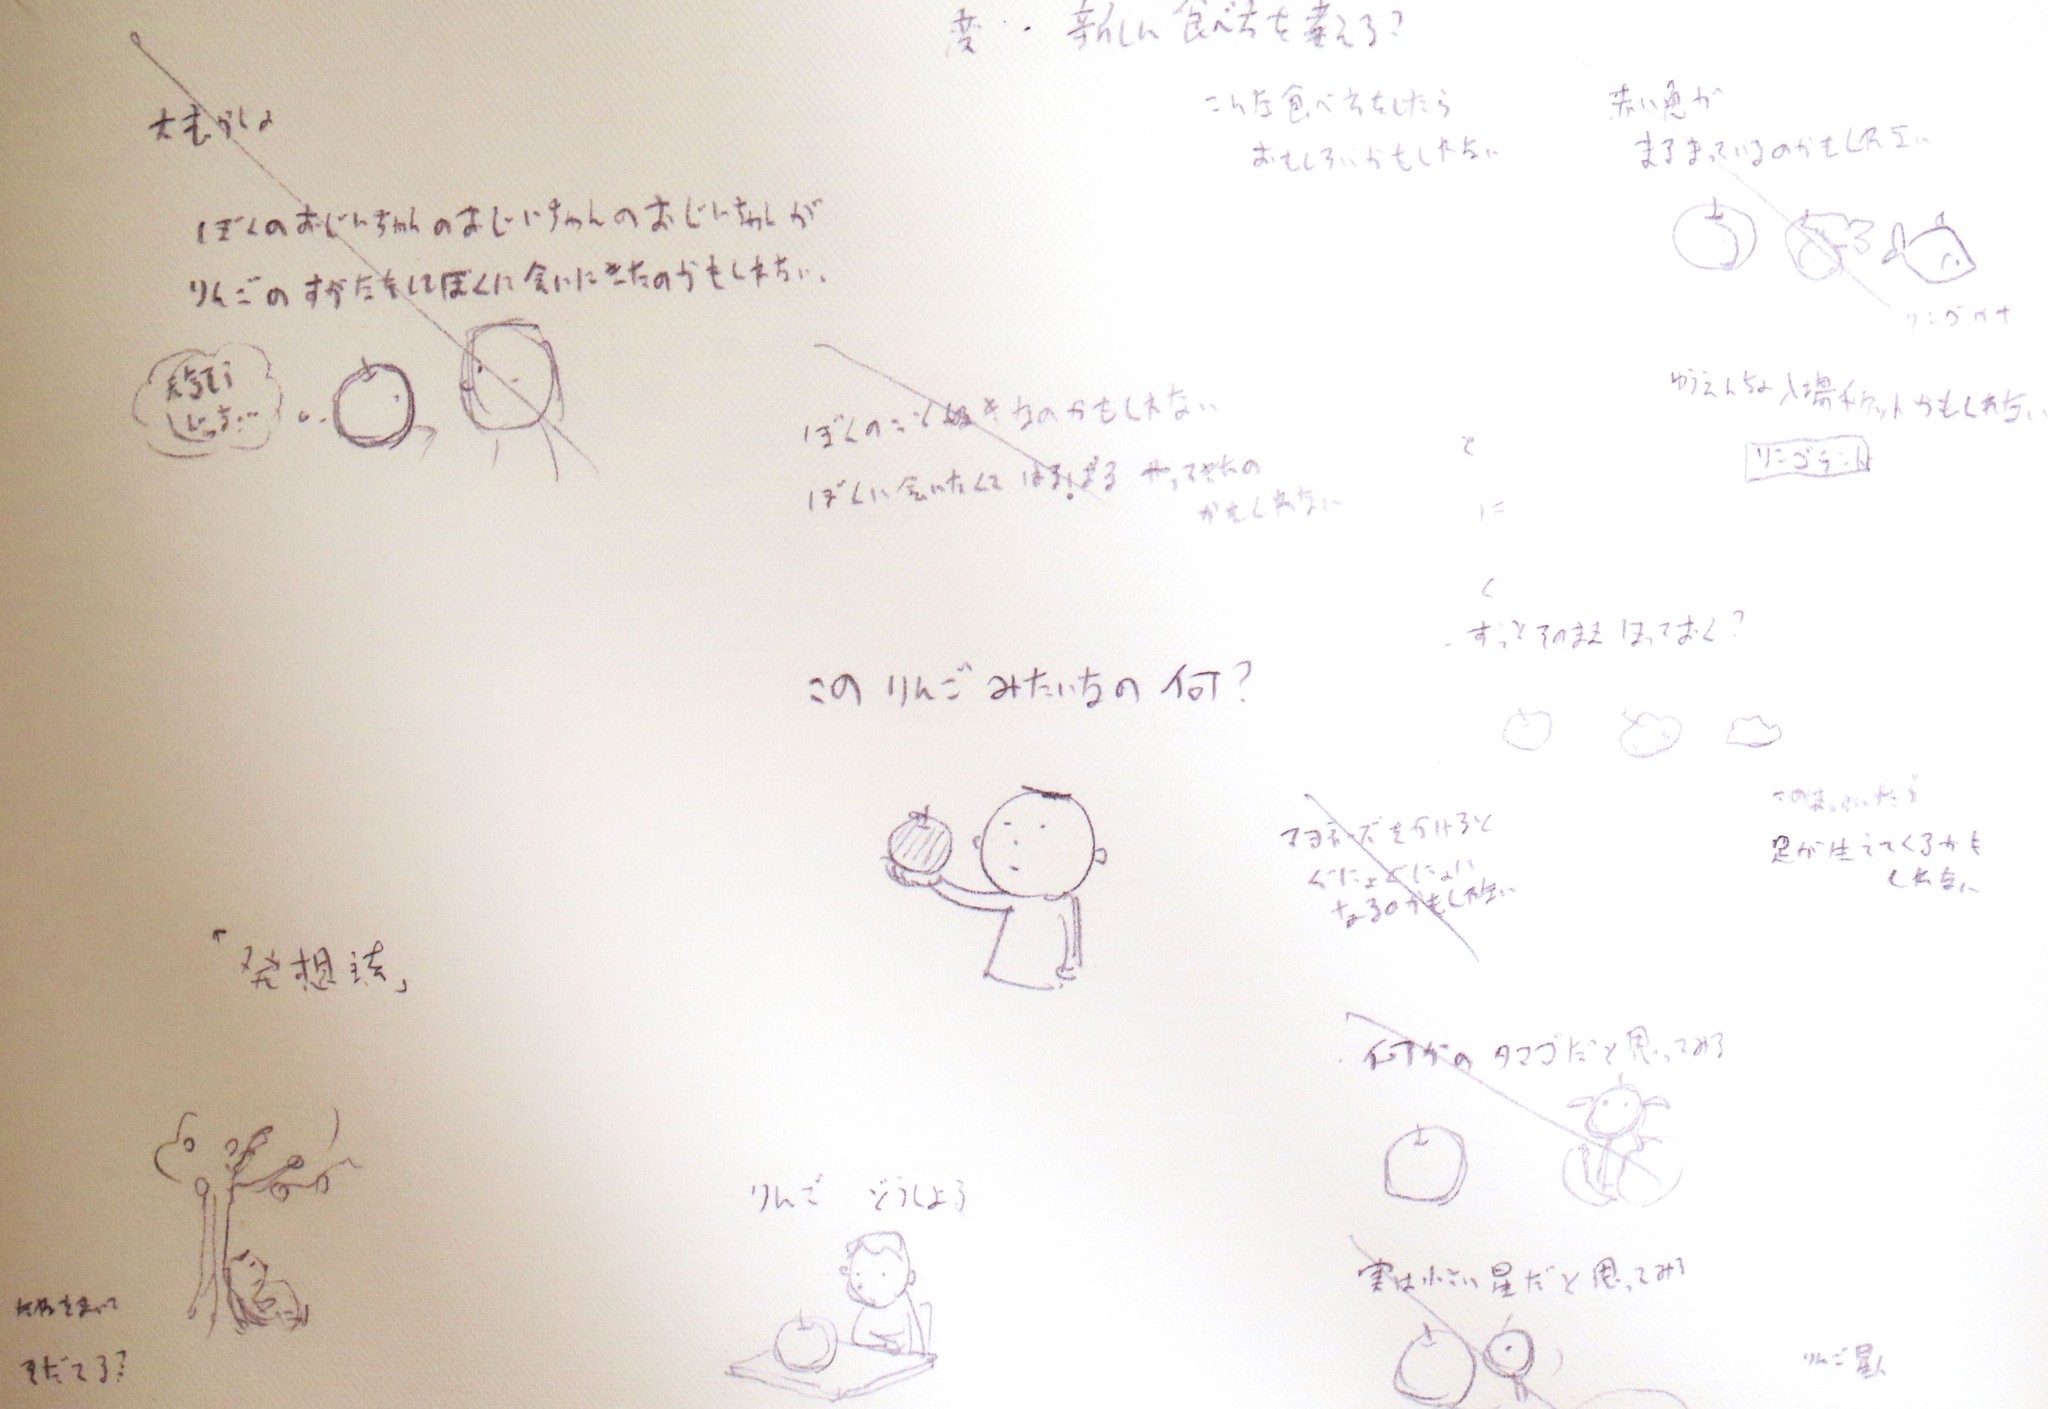 新しい食べ方を考える?
こんな食べ方をしたら
おもしろいかもしれない
赤い魚が
まるまっているのかもしれない
大むかしの
ぼくのおじいちゃんのおじいちゃんのおじいちゃんが
りんごのすがたをしてぼくに会いにきたのかもしれない。
ぼくのこと好きなのかもしれない
ぼくに会いたくてはるばるやってきたの
かもしれない
ゆうえんちの入場チケットかもしれない
リンゴランド
と
に
く
・ずっとそのままほっておく?
このりんごみたいなの何?
マヨネーズをかけると
ぐにょぐにょに
なるのかもしれない
足が生えてくるかも
しれない
「発想法」
・何かのタマゴだと思ってみる
りんご どうしよう
実は小さい星だと思ってみる
りんご星人
たねをまいて
そだてる?